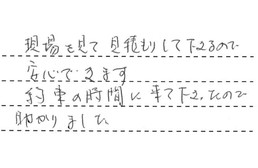 現場を見て見積もりして下さるので
安心できます
約束の時間に来て下さったので
助かりました